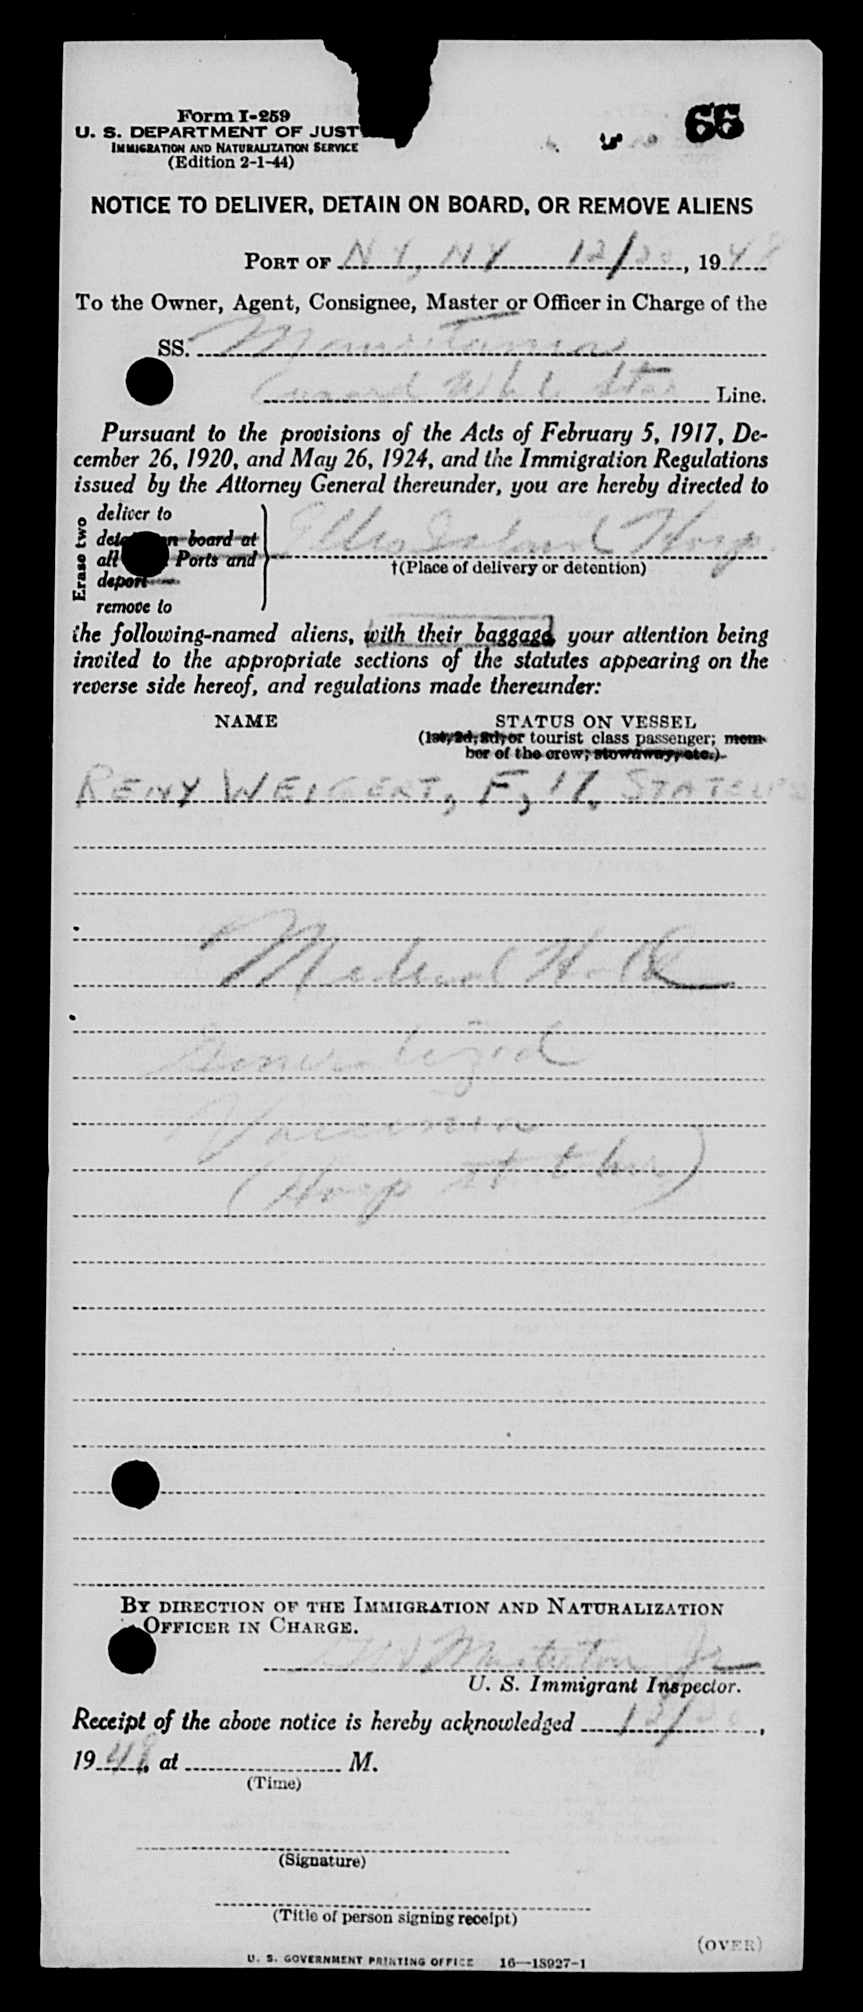 66
Form I-259
U. S. DEPARTMENT OF JUST
IMMIGRATION AND NATURALIZATION SERVICE
(Edition 2-1-44)
NOTICE TO DELIVER, DETAIN ON BOARD, OR REMOVE ALIENS
PORT OF N Y, N Y 12/20, 1948
To the Owner, Agent, Consignee, Master or Officer in Charge of the
SS. Mauretania
Cunard White Star Line.
Pursuant to the provisions of the Acts of February 5, 1917, De-
cember 26, 1920, and May 26, 1924, and the Immigration Regulations
issued by the Attorney General thereunder, you are hereby directed to
Erase two
deliver to
on board at Ellis Island Hosp.
all Ports and
†(Place of delivery or detention)
deport
remove to
the following-named aliens, with their baggage, your attention being
invited to the appropriate sections of the statutes appearing on the
reverse side hereof, and regulations made thereunder:
NAME STATUS ON VESSEL
(1st, 2d, 3d, or tourist class passenger; mem-
ber of the crew; stowaway, etc.)
RENY WEIGERT, F, 17, STATELESS
Medical Hold
Generalized
Vaccinia
(Hosp
BY DIRECTION OF THE IMMIGRATION AND NATURALIZATION
OFFICER IN CHARGE.
Masterton Jr
U. S. Immigrant Inspector.
Receipt of the above notice is hereby acknowledged 12/20,
1948, at M.
(Time)
(Signature)
(Title of person signing receipt)
(OVER)
U. S. GOVERNMENT PRINTING OFFICE 16—18927-1